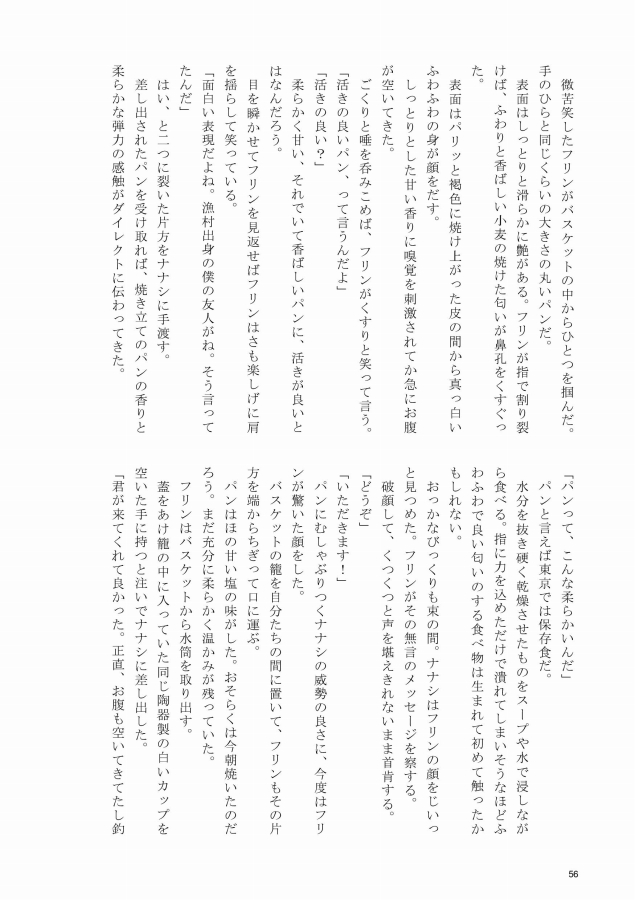 微苦笑したフリンがバスケットの中からひとつを掴んだ。
手のひらと同じくらいの大きさの丸いパンだ。
　表面はしっとりと滑らかに艶がある。フリンが指で割り裂
けば、ふわりと香ばしい小麦の焼けた匂いが鼻孔をくすぐっ
た。
　表面はパリッと褐色に焼け上がった皮の間から真っ白い
ふわふわの身が顔をだす。
　しっとりとした甘い香りに嗅覚を刺激されてか急にお腹
が空いてきた。
　ごくりと唾を呑みこめば、フリンがくすりと笑って言う。
「活きの良いパン、って言うんだよ」
「活きの良い？」
　柔らかく甘い、それでいて香ばしいパンに、活きが良いと
はなんだろう。
　目を瞬かせてフリンを見返せばフリンはさも楽しげに肩
を揺らして笑っている。
「面白い表現だよね。漁村出身の僕の友人がね。そう言って
たんだ」
　はい、と二つに裂いた片方をナナシに手渡す。
　差し出されたパンを受け取れば、焼き立てのパンの香りと
柔らかな弾力の感触がダイレクトに伝わってきた。
「パンって、こんな柔らかいんだ」
　パンと言えば東京では保存食だ。
　水分を抜き硬く乾燥させたものをスープや水で浸しなが
ら食べる。指に力を込めただけで潰れてしまいそうなほどふ
わふわで良い匂いのする食べ物は生まれて初めて触ったか
もしれない。
　おっかなびっくりも束の間。ナナシはフリンの顔をじいっ
と見つめた。フリンがその無言のメッセージを察する。
　破顔して、くつくつと声を堪えきれないまま首肯する。
「どうぞ」
「いただきます！」
　パンにむしゃぶりつくナナシの威勢の良さに、今度はフリ
ンが驚いた顔をした。
　バスケットの籠を自分たちの間に置いて、フリンもその片
方を端からちぎって口に運ぶ。
　パンはほの甘い塩の味がした。おそらくは今朝焼いたのだ
ろう。まだ充分に柔らかく温かみが残っていた。
　フリンはバスケットから水筒を取り出す。
　蓋をあけ籠の中に入っていた同じ陶器製の白いカップを
空いた手に持つと注いでナナシに差し出した。
「君が来てくれて良かった。正直、お腹も空いてきてたし釣
56